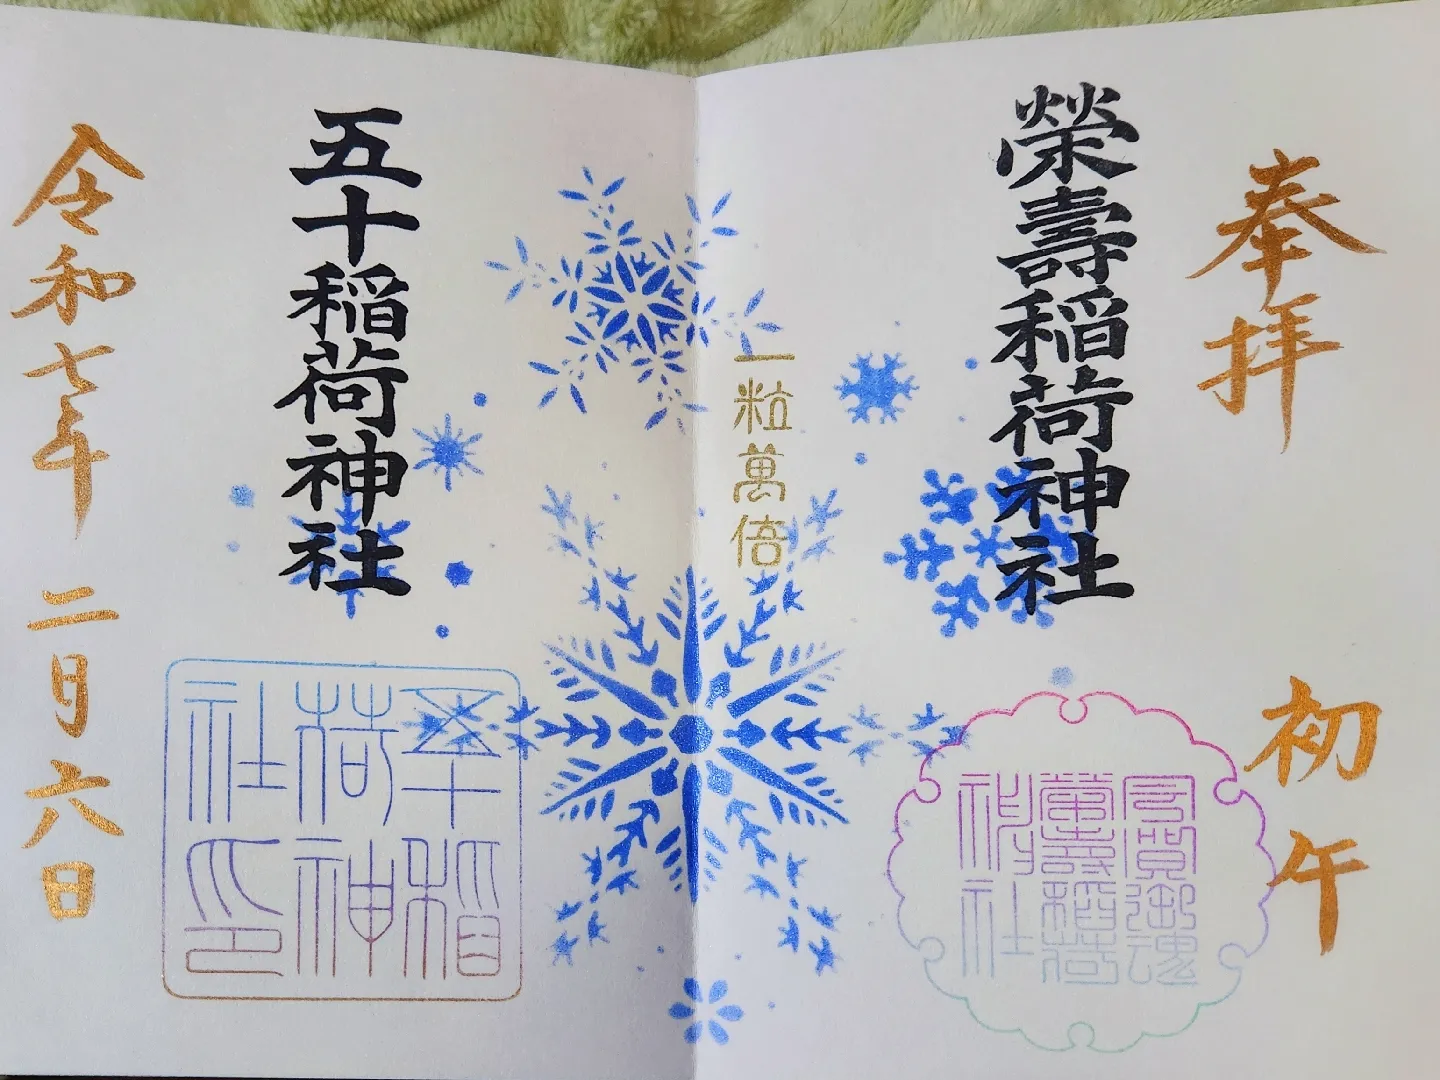 奉拝
初午
榮壽稲荷神社
一粒萬倍
五十稲荷神社
令和七年 二月六日
五十稲荷神社印